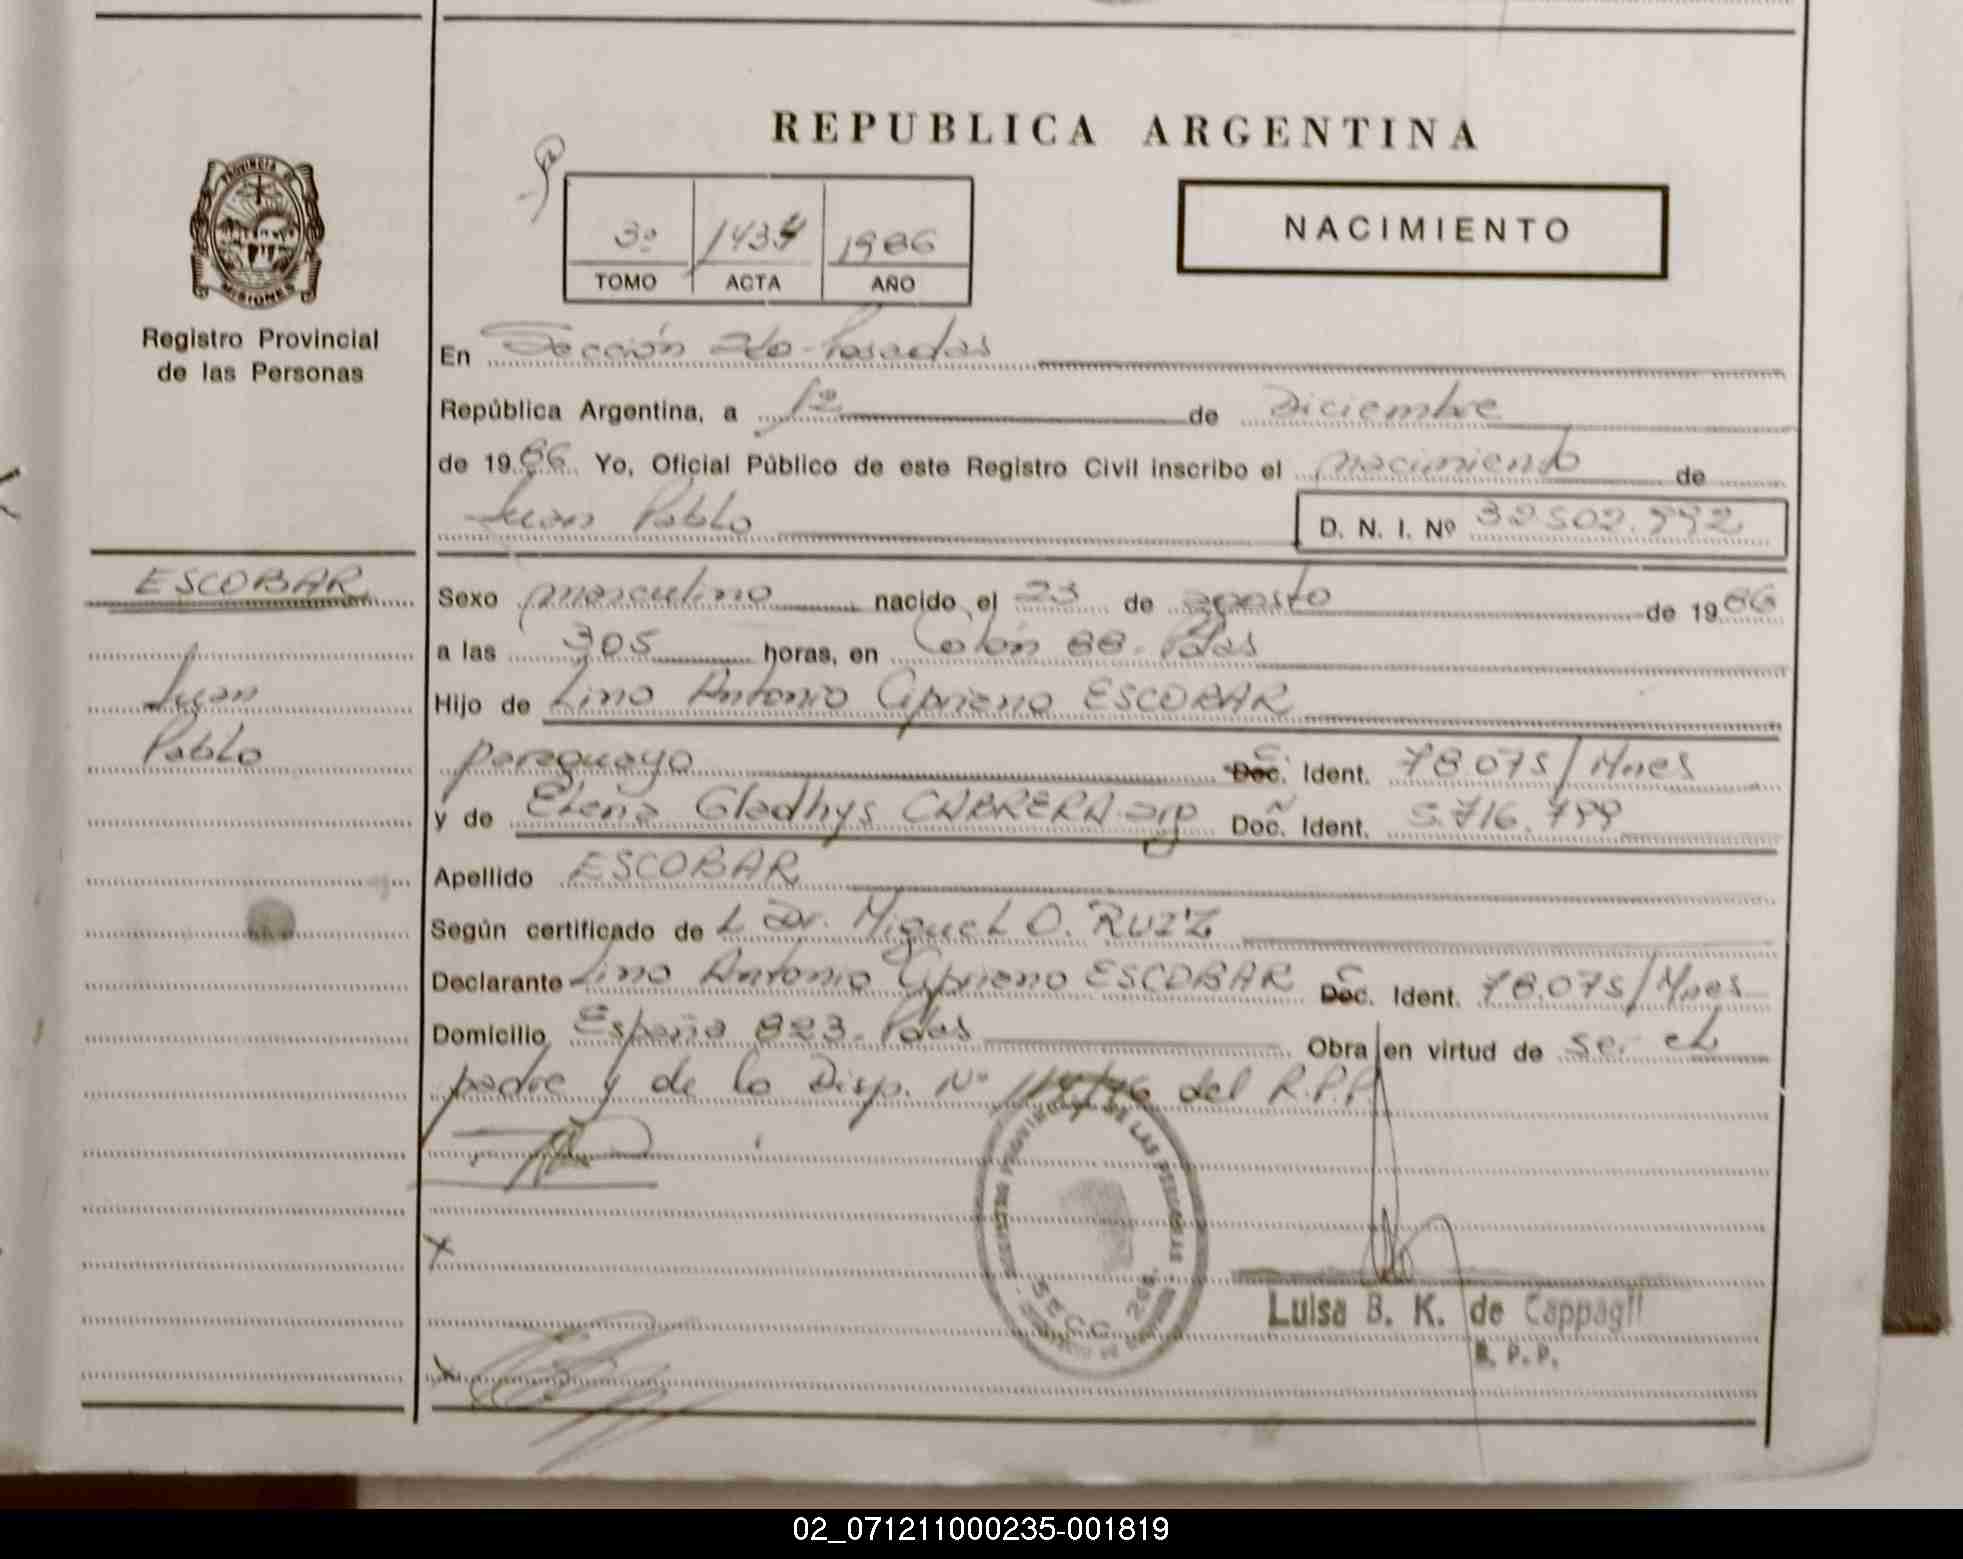 REPUBLICA ARGENTINA
NACIMIENTO
3º 1434 1986
TOMO ACTA AÑO
PROVINCIA DE
MISIONES
Registro Provincial
de las Personas
En Sección 2do-Posadas
República Argentina, a 1º de Diciembre
de 1986 Yo, Oficial Público de este Registro Civil inscribo el nacimiento de
Juan Pablo D. N. I. Nº 32502.992
ESCOBAR
Juan
Pablo
Sexo masculino nacido el 23 de agosto de 1986
a las 305 horas, en Colón 88. Pdas
Hijo de Lino Antonio Cipriano ESCOBAR
paraguayo C. Ident. 78.075/Mnes
y de Elena Gladhys CABRERA arg Doc. Ident. 5.716.799
Apellido ESCOBAR
Según certificado de L Dr. Miguel O. RUIZ
Declarante Lino Antonio Cipriano ESCOBAR C. Ident. 78.075/Mnes
Domicilio España 823. Pdas Obra en virtud de ser el
padre y de la Disp. Nº del R.P.P.
DE LAS PERSONAS
SECC. 2da.
Luisa B. K. de Cappagli
R. P. P.
02_071211000235-001819